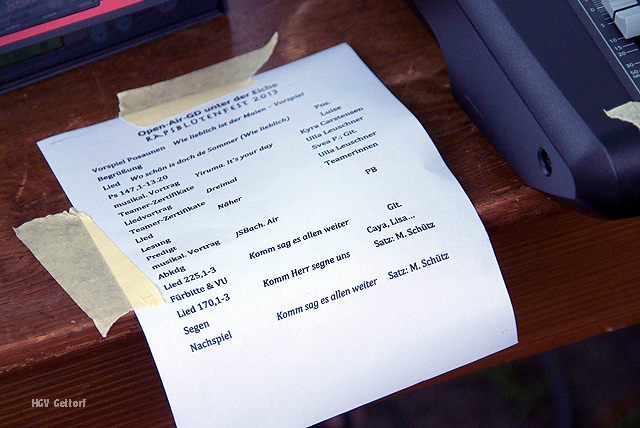 Open-Air-GD unter der Eiche
RAPSBLÜTENFEST 2013
Vorspiel Posaunen Wie lieblich ist der Maien – Vorspiel Pos.
Begrüßung Luise
Lied Wo schön is doch de Sommer (Wie lieblich) Kyra Carstensen
Ps 147,1-13.20 Ulla Leuschner
musikal. Vortrag Yiruma. It's your day Svea P.: Git.
Teamer-Zertifikate Ulla Leuschner
Liedvortrag Dreimol Teamerinnen
Teamer-Zertifikate
Lied Näher
Lesung PB
Predigt
musikal. Vortrag JSBach. Air
Abkdg
Lied 225,1-3 Komm sag es allen weiter Git.
Fürbitte & VU Caya, Lisa...
Lied 170,1-3 Komm Herr segne uns Satz: M. Schütz
Segen
Nachspiel Komm sag es allen weiter Satz: M. Schütz
HGV Gettorf
10
15
20
30
10